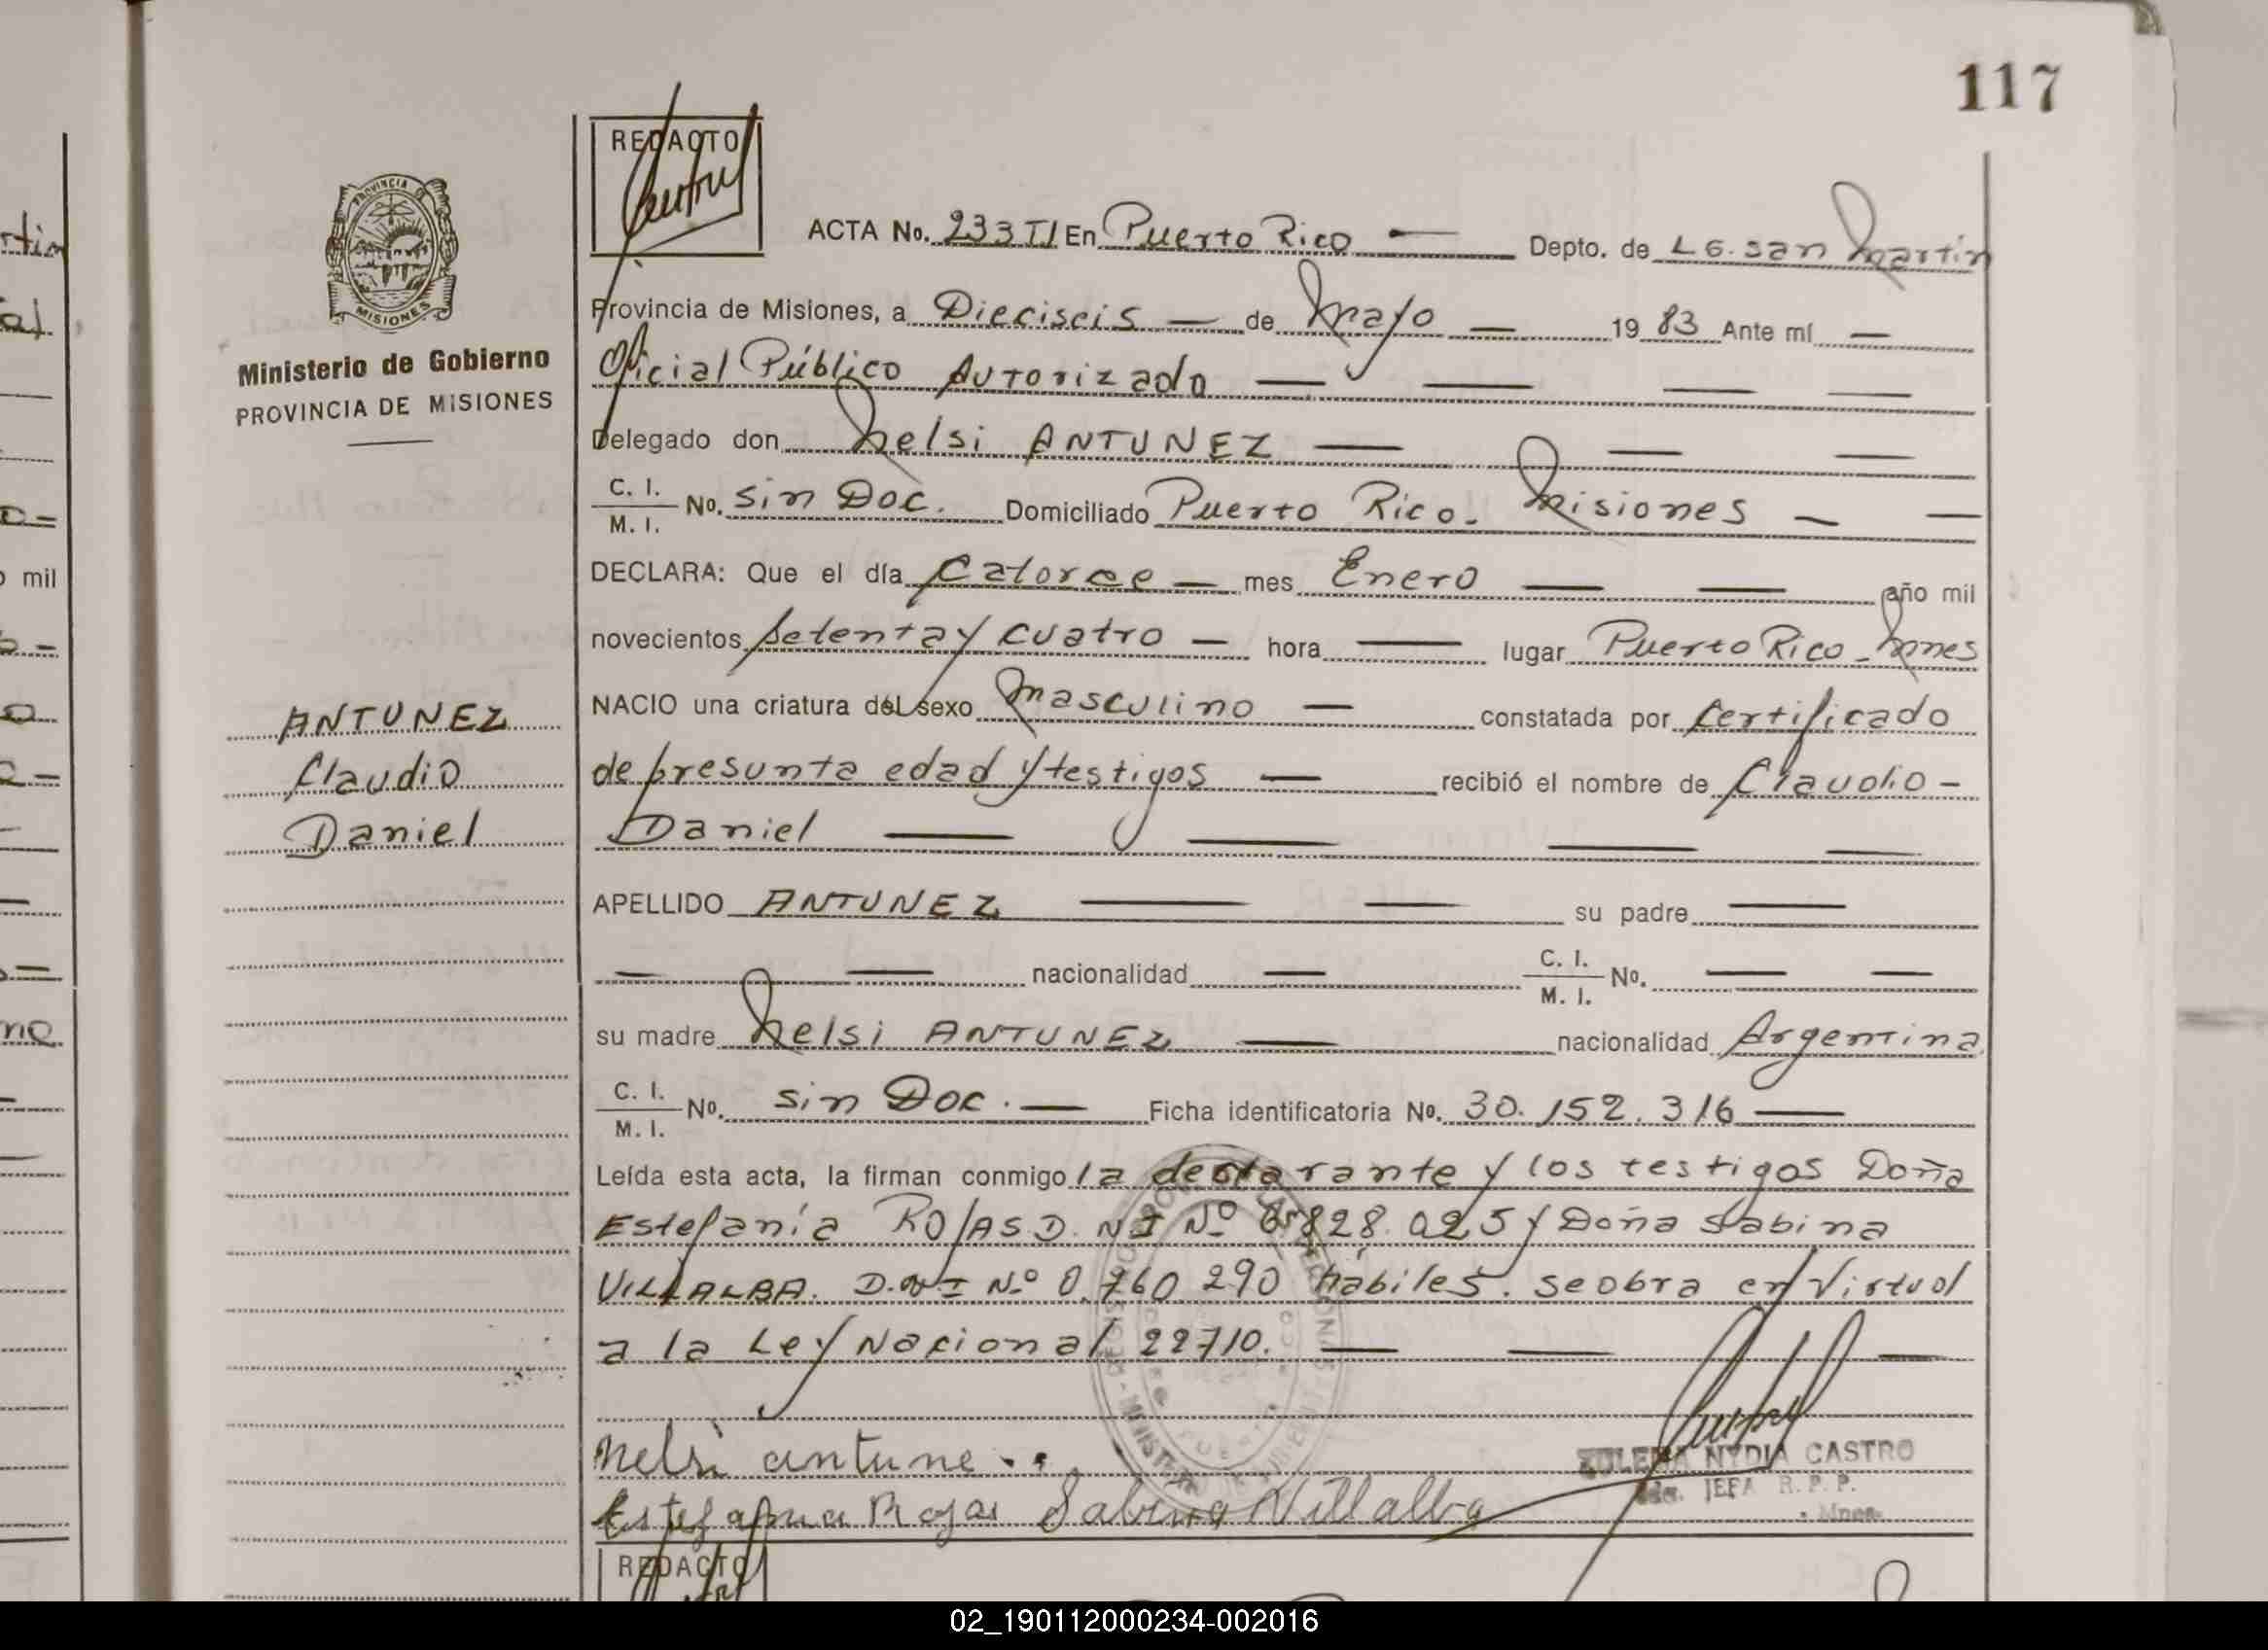 117
REDACTO
ACTA No. 233 TI En Puerto Rico — Depto. de L G. San Martin
Provincia de Misiones, a Dieciseis — de Mayo — 19 83 Ante mí —
Oficial Público Autorizado — — — —
Delegado don Nelsi ANTUNEZ — — —
C. I. / M. I. No. sin Doc. Domiciliado Puerto Rico. Misiones — —
DECLARA: Que el día Catorce — mes Enero — — año mil
novecientos setenta y cuatro — hora — lugar Puerto Rico - Mnes
NACIO una criatura del sexo Masculino — constatada por Certificado
de presunta edad y testigos — recibió el nombre de Claudio -
Daniel — — — —
APELLIDO ANTUNEZ — — su padre —
— — nacionalidad — C. I. / M. I. No. — —
su madre Nelsi ANTUNEZ — nacionalidad Argentina
C. I. / M. I. No. sin Doc. — Ficha identificatoria No. 30.152.316 —
Leída esta acta, la firman conmigo la declarante y los testigos Doña
Estefanía ROJAS D. N I Nº 828.025 y Doña Sabina
VILLALBA. D.N I Nº 0.760 290 hábiles. se obra en Virtud
a la Ley Nacional 22710. — — —
Nelsi antune
Estefania Rojas Sabina Villalba
ZULEMA NYDIA CASTRO
JEFA R. P. P.
Mnes.
PROVINCIA DE
MISIONES
Ministerio de Gobierno
PROVINCIA DE MISIONES
ANTUNEZ
Claudio
Daniel
REDACTO
rtin
al.
o mil
no
02_190112000234-002016